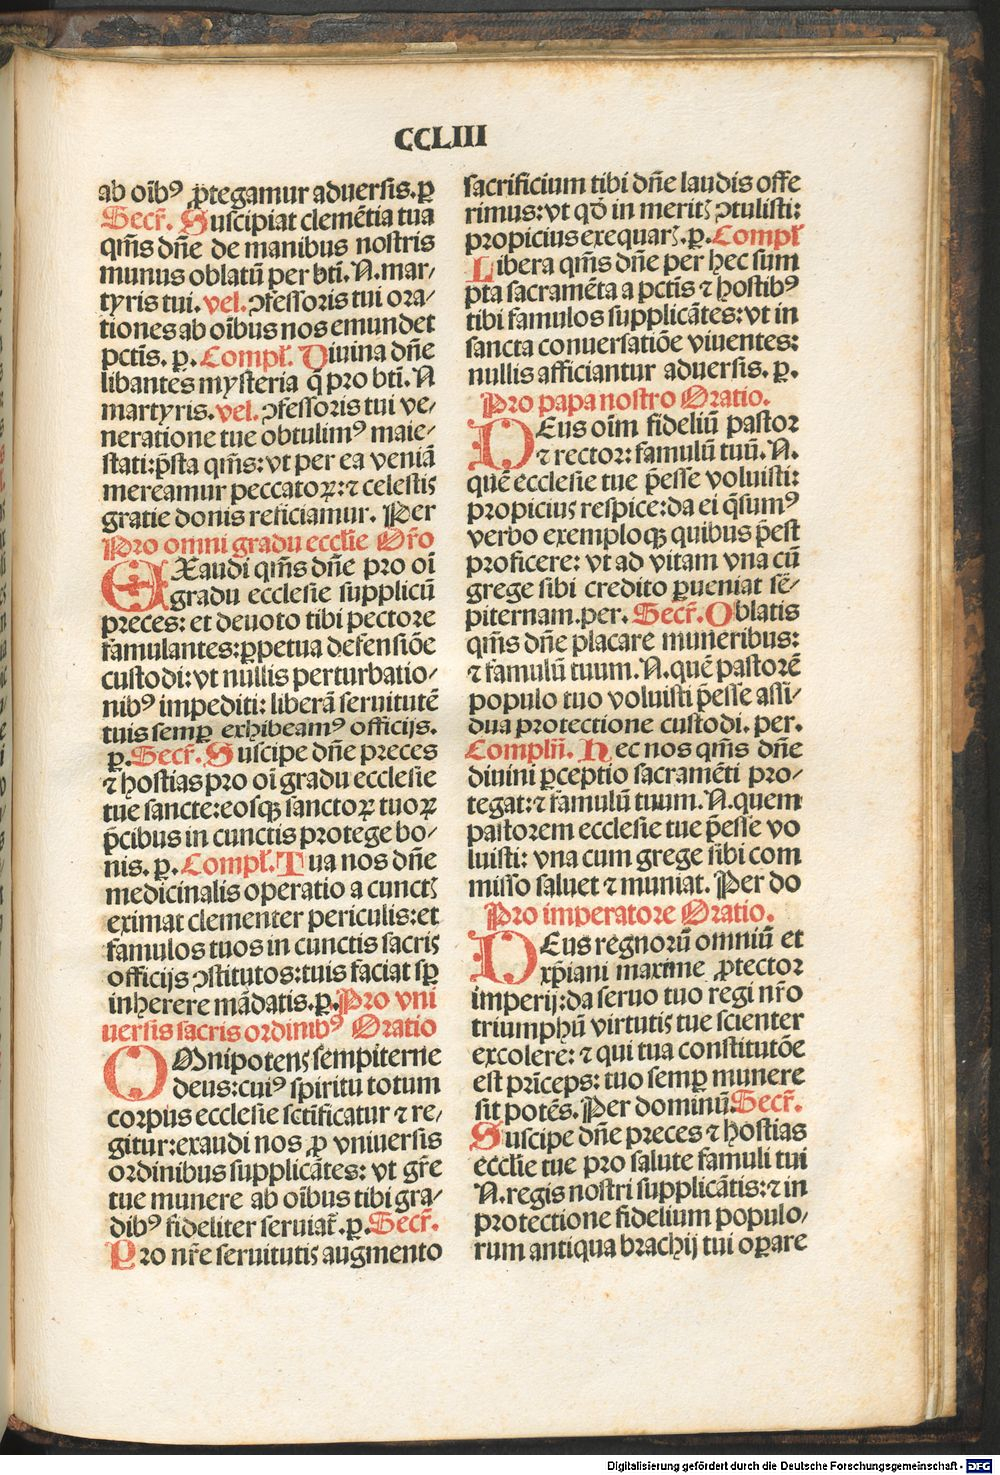 CCLIII
ab oībꝰ ꝓtegamur aduersis. ꝑ
Secr̄. Suscipiat clemētia tua
qm̄s dn̄e de manibus nostris
munus oblatū per bt̄i. N. mar/
tyris tui. vel. ↄfessoris tui ora/
tiones ab oībus nos emundet
pct̄is. ꝑ. Compl̄. Diuina dn̄e
libantes mysteria q̄ pro bt̄i. N
martyris. vel. ↄfessoris tui ve/
neratione tue obtulimꝰ maie/
stati: p̄sta qm̄s: vt per ea veniā
mereamur peccatoꝝ: ⁊ celestis
gratie donis reficiamur. Per
Pro omni gradu eccl̄ie Or̄o
EXaudi qm̄s dn̄e pro oī
gradu ecclesie supplicū
preces: et deuoto tibi pectore
famulantes: ꝑpetua defensiōe
custodi: vt nullis perturbatio-
nibꝰ impediti: liberā seruitutē
tuis semꝑ exhibeamꝰ officijs.
ꝑ. Secr̄. Suscipe dn̄e preces
⁊ hostias pro oī gradu ecclesie
tue sancte: eosqꝫ sanctoꝝ tuoꝝ
p̄cibus in cunctis protege bo/
nis. ꝑ. Compl̄. Tua nos dn̄e
medicinalis operatio a cunctꝭ
eximat clementer periculis: et
famulos tuos in cunctis sacris
officijs ↄstitutos: tuis faciat sꝑ
inherere mādatis. ꝑ. Pro vni
uersis sacris ordinibꝰ Oratio
OMnipotens sempiterne
deus: cuiꝰ spiritu totum
corpus ecclesie sctificatur ⁊ re/
gitur: exaudi nos ꝓ vniuersis
ordinibus supplicātes: vt gr̄e
tue munere ab oībus tibi gra/
dibꝰ fideliter seruiat̄. ꝑ. Secr̄.
Pro nr̄e seruitutis augmento
sacrificium tibi dn̄e laudis offe
rimus: vt qd̄ in meritꝭ ↄtulisti:
propicius exequarꝭ. ꝑ. Compl̄
Libera qm̄s dn̄e per hec sum
pta sacramēta a pct̄is ⁊ hostibꝰ
tibi famulos supplicātes: vt in
sancta conuersatiōe viuentes:
nullis afficiantur aduersis. ꝑ.
Pro papa nostro Oratio.
DEus oīm fideliū pastor
⁊ rector: famulū tuū. N.
quē ecclesie tue p̄esse voluisti:
propicius respice: da ei q̄sumꝰ
verbo exemploqꝫ quibus p̄est
proficere: vt ad vitam vna cū
grege sibi credito ꝑueniat sē-
piternam. per. Secr̄. Oblatis
qm̄s dn̄e placare muneribus:
⁊ famulū tuum. N. quē pastorē
populo tuo voluisti p̄esse assi/
dua protectione custodi. per.
Compln̄. Hec nos qm̄s dn̄e
diuini ꝑceptio sacramēti pro/
tegat: ⁊ famulū tuum. N. quem
pastorem ecclesie tue p̄esse vo
luisti: vna cum grege sibi com
misso saluet ⁊ muniat. Per do
Pro imperatore Oratio.
DEus regnorū omniū et
xp̄iani maxime ꝓtector
imperij: da seruo tuo regi nr̄o
triumphū virtutis tue scienter
excolere: ⁊ qui tua constitutōe
est prīceps: tuo semꝑ munere
sit potēs. Per dominū. Secr̄.
Suscipe dn̄e preces ⁊ hostias
eccl̄ie tue pro salute famuli tui
N. regis nostri supplicātis: ⁊ in
protectione fidelium populo/
rum antiqua brachij tui oꝑare
Digitalisierung gefördert durch die Deutsche Forschungsgemeinschaft - DFG